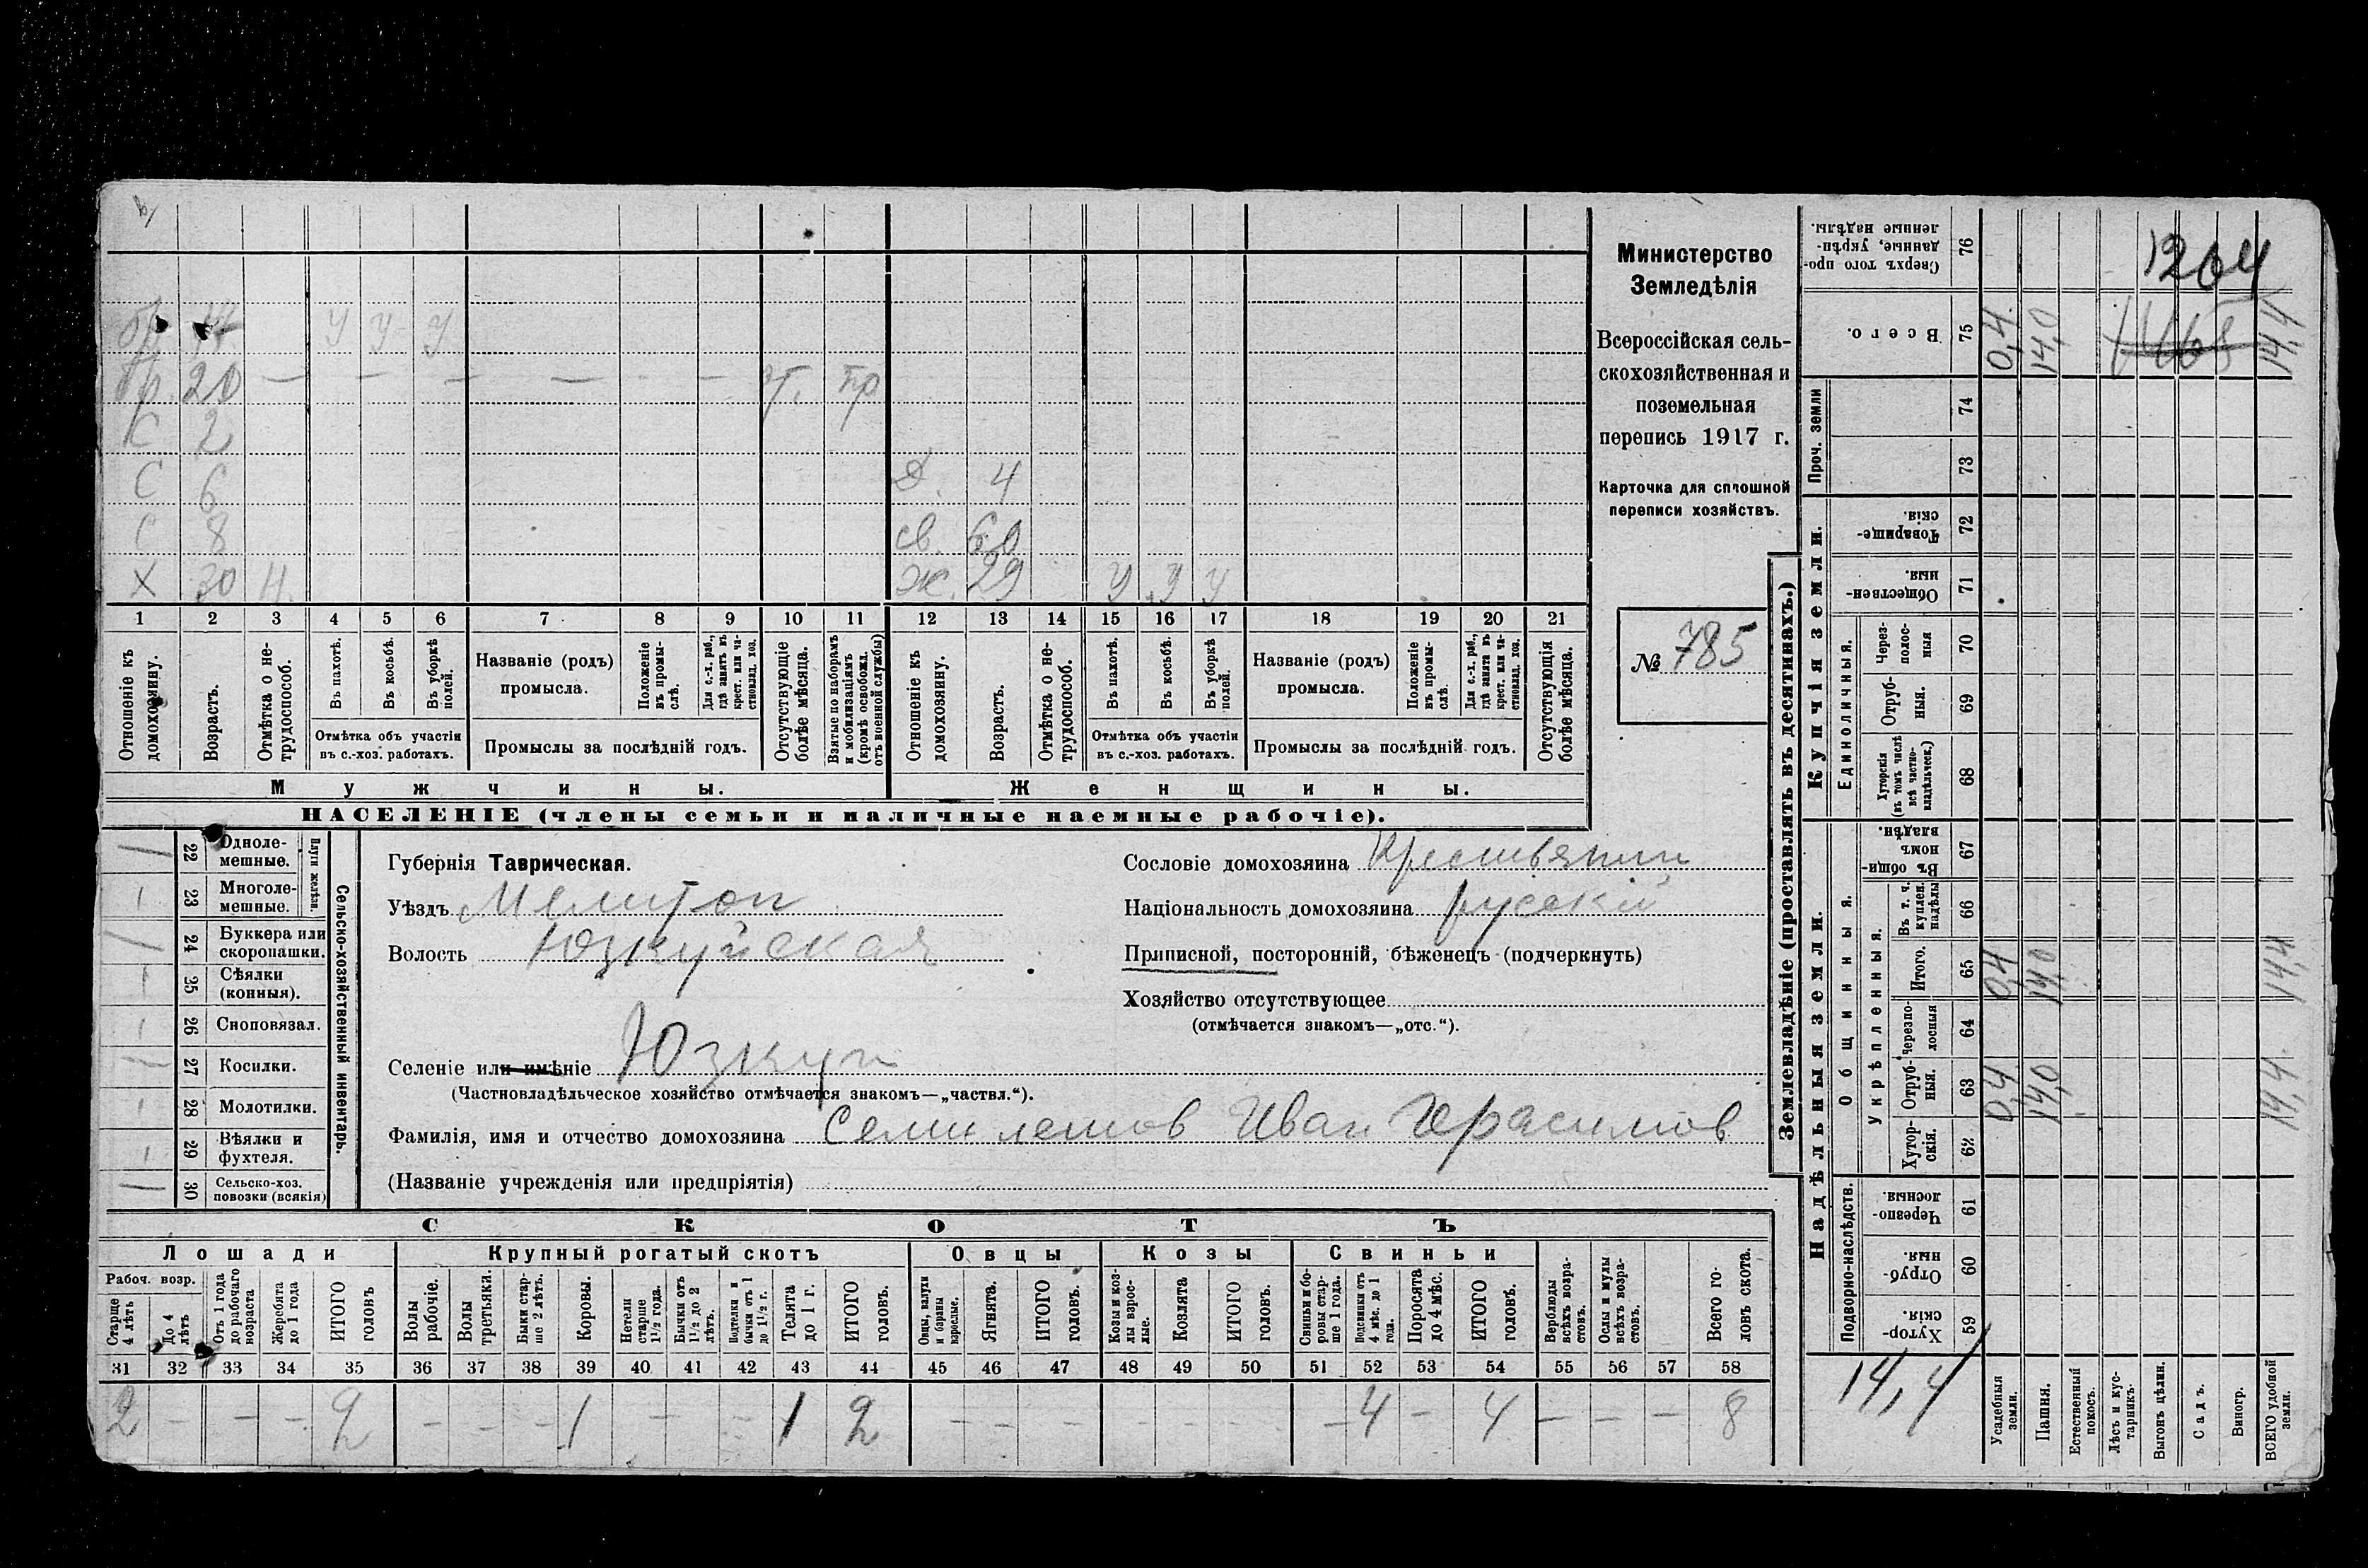 1264
Министерство
Земледѣлія
Всероссійская сель-
скохозяйственная и
поземельная
перепись 1917 г.
Карточка для сплошной
переписи хозяйствъ.
№ 785
У У У
бр. 20 — — — — — — пр
С 2
С 6
Д. 4
С 8
св. 60
Х 30 Н.
Ж. 29 У У У
1 2 3 4 5 6 7 8 9 10 11 12 13 14 15 16 17 18 19 20 21
Отношеніе къ домохозяину.
Возрастъ.
Отмѣтка о нетрудоспособ.
Въ пахотѣ.
Въ косьбѣ.
Въ уборкѣ полей.
Отмѣтка объ участіи
въ с.-хоз. работахъ.
Названіе (родъ)
промысла.
Положеніе въ промыслѣ.
Для с.-х. раб., гдѣ занятъ въ крест. или частновлад. хоз.
Промыслы за послѣдній годъ.
Отсутствующіе болѣе мѣсяца.
Взятые по наборамъ и мобилизаціямъ (кромѣ освобожд. отъ военной службы)
Отношеніе къ домохозяину.
Возрастъ.
Отмѣтка о нетрудоспособ.
Въ пахотѣ.
Въ косьбѣ.
Въ уборкѣ полей.
Отмѣтка объ участіи
въ с.-хоз. работахъ.
Названіе (родъ)
промысла.
Положеніе въ промыслѣ.
Для с.-х. раб., гдѣ занята въ крест. или частновлад. хоз.
Промыслы за послѣдній годъ.
Отсутствующія болѣе мѣсяца.
Мужчины.
Женщины.
НАСЕЛЕНІЕ (члены семьи и наличные наемные рабочіе).
Сельско-хозяйственный инвентарь.
Плуги желѣзн.
22 Одноле-
мешные.
23 Многоле-
мешные.
24 Буккера или
скоропашки.
25 Сѣялки
(конныя).
26 Сноповязал.
27 Косилки.
28 Молотилки.
29 Вѣялки и
фухтеля.
30 Сельско-хоз.
повозки (всякія)
Губернія Таврическая.
Уѣздъ Мелитоп
Волость Юзкуйская
Селеніе или имѣніе Юзкуи
(Частновладѣльческое хозяйство отмѣчается знакомъ—„частвл.“).
Фамилія, имя и отчество домохозяина Семилетов Иван Герасимов
(Названіе учрежденія или предпріятія)
Сословіе домохозяина Крестьянин
Національность домохозяина русскій
Приписной, посторонній, бѣженецъ (подчеркнуть)
Хозяйство отсутствующее
(отмѣчается знакомъ—„отс.“).
СКОТЪ
Лошади
Крупный рогатый скотъ
Овцы
Козы
Свиньи
Рабоч. возр.
Старше 4 лѣтъ
До 4 лѣтъ
Отъ 1 года до рабочаго возраста
Жеребята до 1 года
ИТОГО головъ
Волы рабочіе.
Волы третьяки.
Быки старше 2 лѣтъ.
Коровы.
Нетели старше 1½ года.
Бычки отъ 1½ до 2 лѣтъ.
Подтелки и бычки отъ 1 до 1½ г.
Телята до 1 г.
ИТОГО головъ.
Овцы, валухи и бараны взрослые.
Ягнята.
ИТОГО головъ.
Козы и козлы взрослые.
Козлята
ИТОГО головъ.
Свиньи и боровы старше 1 года.
Подсвинки отъ 4 мѣс. до 1 года.
Поросята до 4 мѣс.
ИТОГО головъ.
Верблюды всѣхъ возрастовъ.
Ослы и мулы всѣхъ возрастовъ.
Всего головъ скота.
31 32 33 34 35 36 37 38 39 40 41 42 43 44 45 46 47 48 49 50 51 52 53 54 55 56 57 58
2 — — — 2 — — — 1 — — 1 2 — — — — — — — 4 — 4 — — — 8
Землевладѣніе (проставлять въ десятинахъ.)
Надѣльныя земли.
Купчія земли.
Проч. земли
Подворно-наслѣдств.
Общинныя.
Укрѣпленныя.
Единоличныя.
59 Хутор-
скія.
60 Отруб-
ныя.
61 Черезпо-
лосныя.
62 Хутор-
скія.
63 Отруб-
ныя. 0,4 14,0 14,4
64 Черезпо-
лосныя
65 Итого. 0,4 14,0 14,4
66 Въ т. ч. куплен. надѣлы
67 Въ общи-
номъ владѣн.
68 Хуторскія (въ томъ числѣ всѣ частно-владѣльческ.)
69 Отруб-
ныя.
70 Через-
полос-
ныя
71 Обществен-
ныя.
72 Товарище-
скія.
73
74
75 Всего. 0,4 14,0 14,4
76 Сверхъ того про-
данные, укрѣп-
ленные надѣлы.
14,4
Усадебныя земли.
Пашня.
Естественный покосъ.
Лѣсъ и кустарникъ.
Выгонъ цѣлин.
Садъ.
Виногр.
ВСЕГО удобной земли.